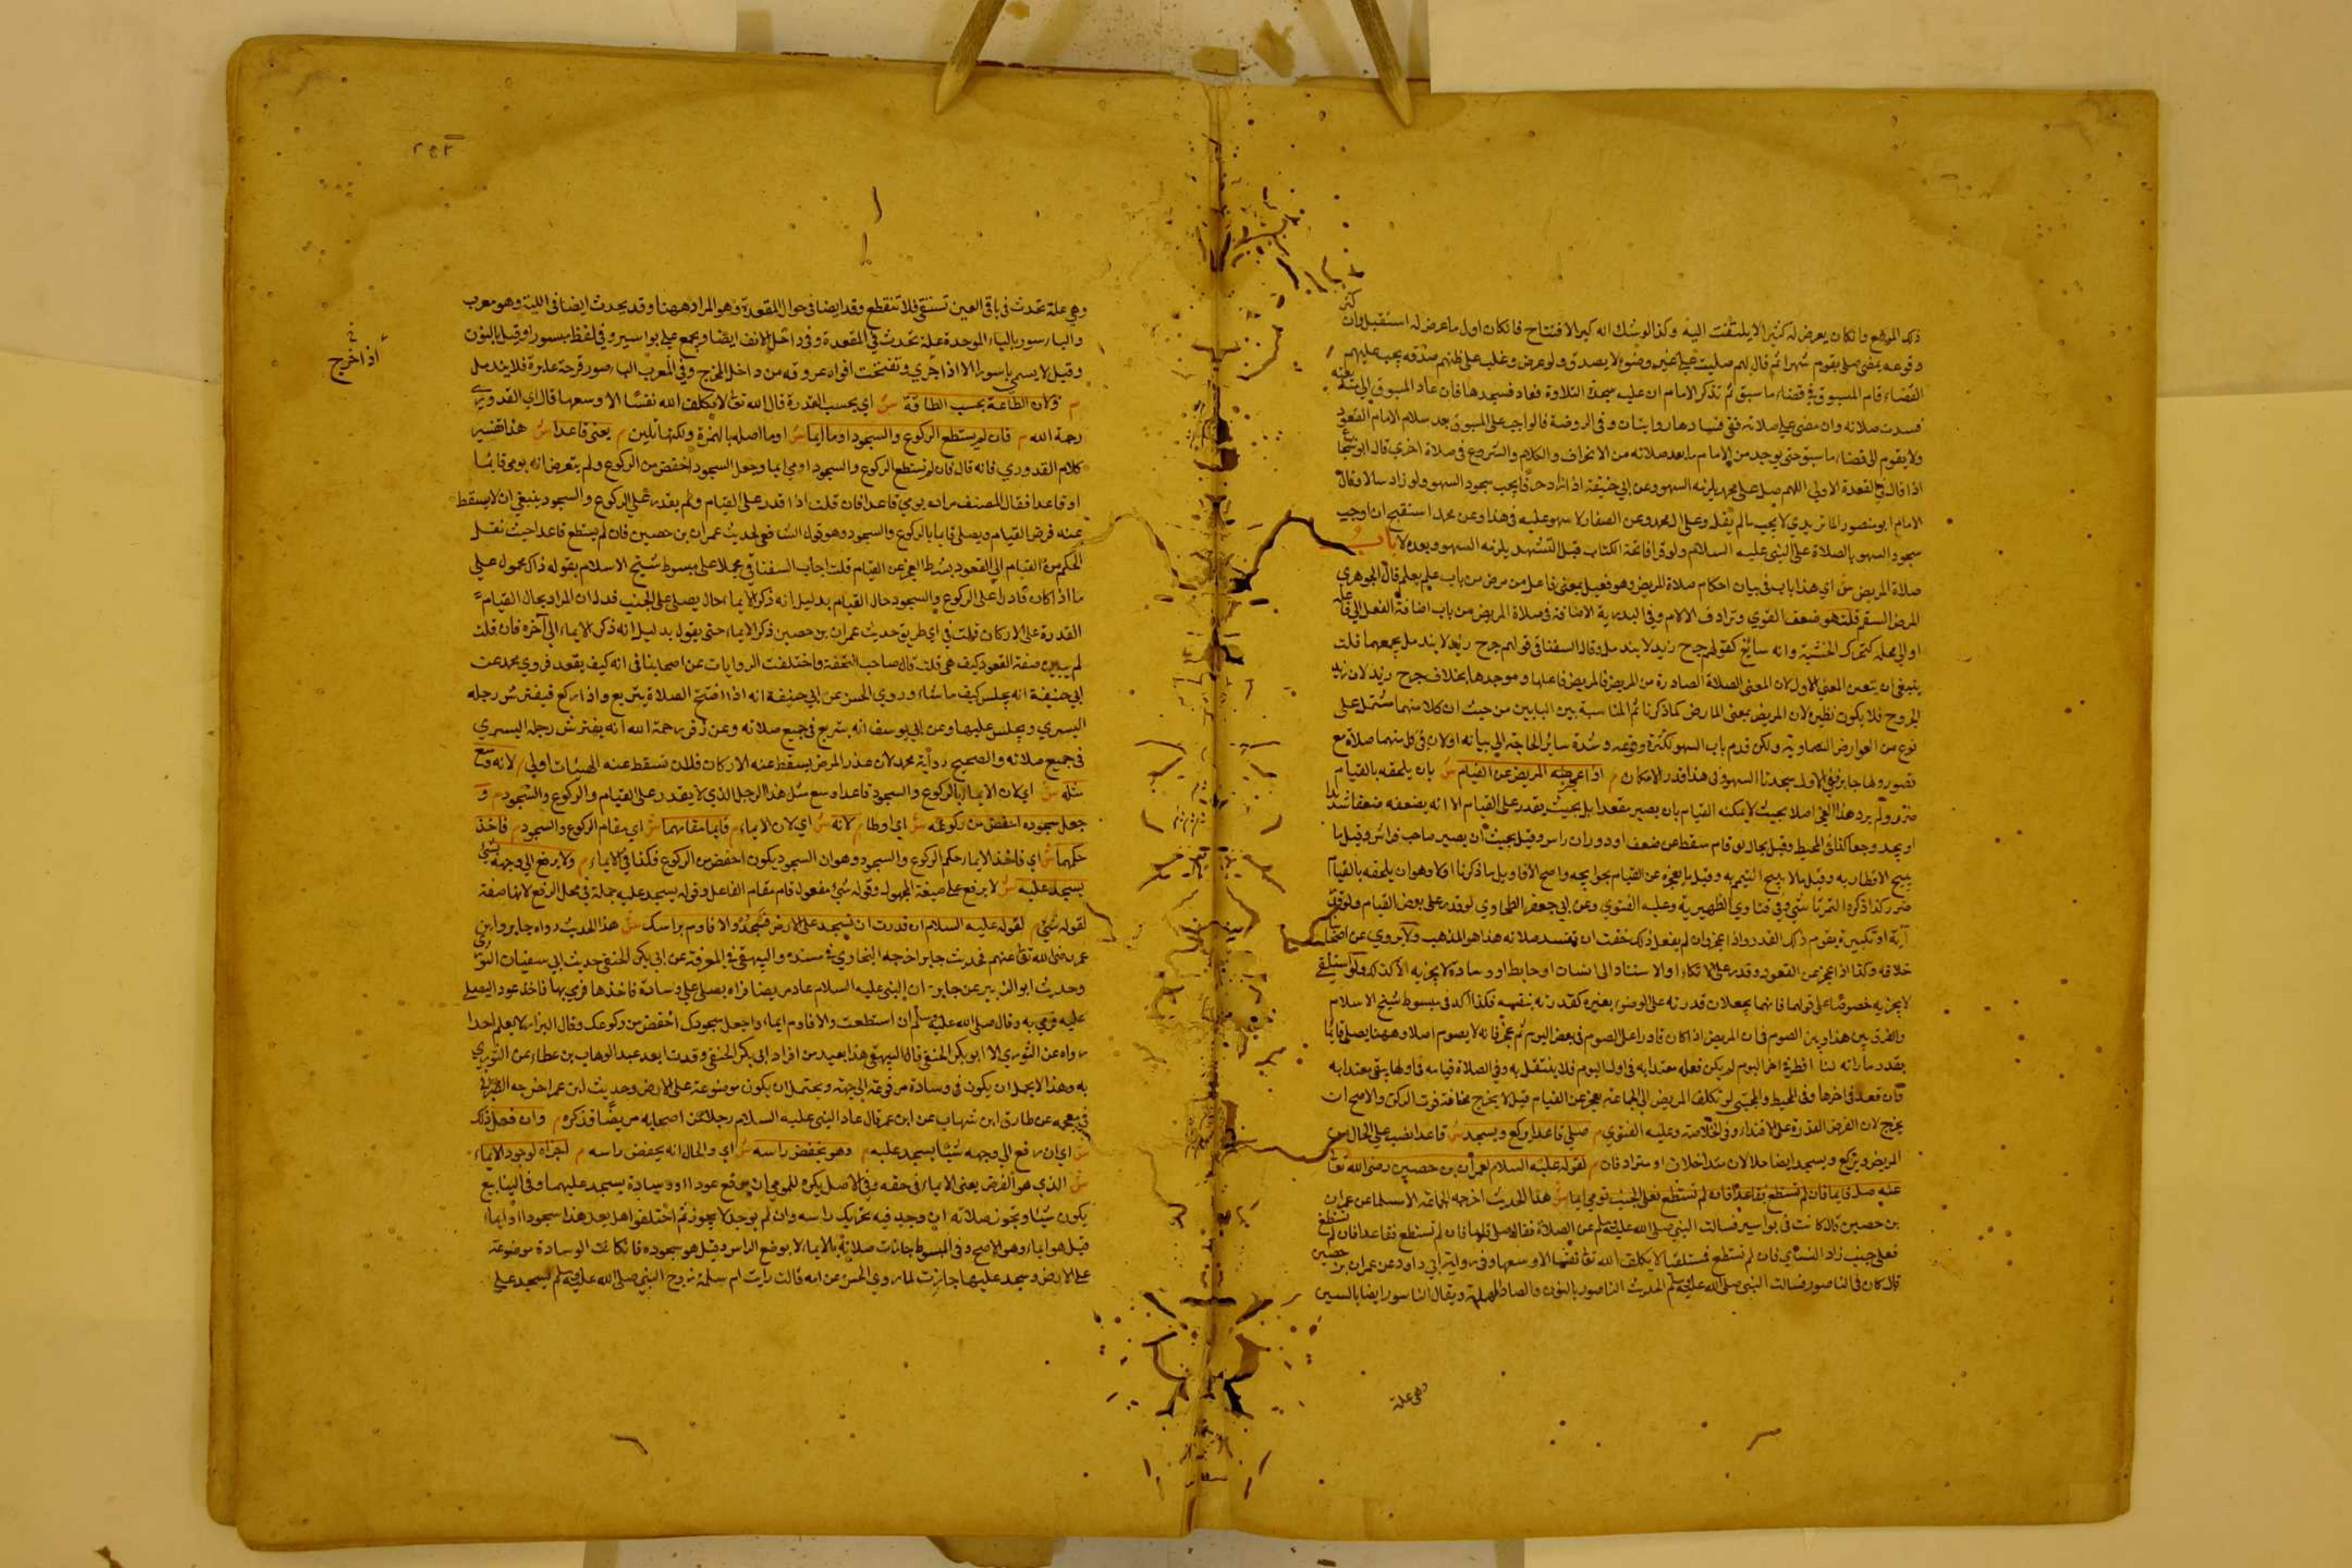 ذلك الموضع وان كان يعرض له كثيرا لا يلتفت اليه وكذا لو شك انه كبر للافتتاح فان كان اول ما عرض له استقبل وان كثر
وقوعه يمضي صلى بقوم شهرا ثم قال لهم صليت على غير وضوء لا يصدق ولو عرض وغلب على ظنهم صدقه يجب عليهم
القضاء قام المسبوق في قضاء ما سبق ثم تذكر الامام ان عليه سجدة التلاوة فعاد فسجدها فان عاد المسبوق الى متابعته
فسدت صلاته وان مضى على صلاته ففي فسادها روايتان وفي الروضة قالوا يجب على المسبوق بعد سلام الامام القعود
ولا يقوم الى قضاء ما سبق حتى يوجد من الامام ما بعد صلاته من الانحراف والكلام والشروع في صلاة اخرى قال ابو شجاع
اذا قال في القعدة الاولى اللهم صل على محمد يلزمه السهو وعن ابي حنيفة اذا زاد حرفا يجب سجود السهو ولو زاد سالا وقال
الامام ابو منصور الماتريدي لا يجب ما لم يقل وعلى ال محمد وعن الصفار لا سهو عليه في هذا وعن محمد استقبح ان اوجب
سجود السهو بالصلاة على النبي عليه السلام ولو قرا فاتحة الكتاب قبل التشهد يلزمه السهو وبعده لا باب
صلاة المريض ش اي هذا باب في بيان احكام صلاة المريض وهو فعيل بمعنى فاعل من مرض من باب علم يعلم قال الجوهري
المرض السقم قلت هو ضعف القوي وترادف الالام وفي البدرية الاضافة في صلاة المريض من باب اضافة الفعل الى فاعله
او الى محله كتحرك الخشبة وانه سائغ كقولهم جرح زيد لا يندمل وقال السغناقي قولهم جرح زيد لا يندمل يجمعهما قلت
ينبغي ان يتعين المعنى الاول لان المعنى الصلاة الصادرة من المريض فالمريض فاعلها وموجدها بخلاف جرح زيد لان زيد
المجروح فلا يكون نظيره لان المريض بمعنى المارض كما ذكرنا ثم المناسبة بين البابين من حيث ان كلا منهما مشتمل على
نوع من العوارض السماوية ولكن قدم باب السهو لكثرة وقوعه وشدة سائر الحاجة الى بيانه اولا لان في كل منهما صلاة مع
قصور ولها جابر ففي الاول سجدتا السهو وفي هذا قدر الامكان م اذا عجز المريض عن القيام ش بان يلحقه بالقيام
ضرر ولم يرد هذا العجز اصلا بحيث لا يمكنه القيام بان يصير مقعدا بل بحيث يقدر على القيام الا انه يضعفه ضعفا شديدا
او يجد وجعا كذا في المحيط وقيل بحال لو قام سقط عن ضعف او دوران راس وقيل بحيث ان يصير صاحب فراش وقيل ما
يبيح الافطار به وقيل ما لا يبيح التيمم به وقيل ما يعجزه عن القيام بحوائجه واصح الاقاويل ما ذكرنا اولا وهو ان يلحقه بالقيام
ضرر كذا ذكره التمرتاشي وفي فتاوي الظهيرية وعليه الفتوي وعن ابي جعفر الطحاوي لو قدر على بعض القيام ولو قدر
آية او تكبيرة يقوم ذلك القدر واذا عجز وان لم يفعل ذلك خفت ان تفسد صلاته هذا هو المذهب ولا يروي عن اصحابنا
خلافه وكذا اذا عجز عن القعود وقدر على الاتكاء او الاستناد الى انسان او حائط او وسادة لا يجزيه الا كذلك ولو استلقي
لا يجزيه خصوصا على قولهما فانهما يجعلان قدرته على الوضوء بغيره كقدرته بنفسه فكذا اكد في مبسوط شيخ الاسلام
والفرق بين هذا وبين الصوم فان المريض اذا كان قادرا على الصوم في بعض اليوم ثم عجز فانه لا يصوم اصلا وههنا يصلي قائما
بقدر ما رانه لنا افطره اخر اليوم لم يكن فعله معتدا به في اول اليوم فلا يشتغل به وفي الصلاة قيامه في اولها يبقى معتدا به
فان قعد في اخرها وفي المحيط والمجتبى لو تكلف المريض الى الجماعة يعجز عن القيام قيل لا يخرج مخافة فوت الركن والاصح ان
يخرج لان الفرض القدرة على الاقتداء وفي الخلاصة وعليه الفتوي م صلى قاعدا يركع ويسجد ش قاعدا نصب على الحال من
المريض ويركع ويسجد ايضا حالان متداخلان او مترادفان م لقوله عليه السلام لعمران بن حصين رضي الله تعا
عنه صل قايما فان لم تستطع فقاعدا فان لم تستطع فعلى الجنب تومي ايما ش هذا الحديث اخرجه الجماعة الا مسلما عن عمران
بن حصين قال كانت في بواسير فسالت النبي صلى الله عليه وسلم عن الصلاة فقال صل قايما فان لم تستطع فقاعدا فان لم تستطع
فعلى جنب زاد النسائي فان لم تستطع فمستلقيا لا يكلف الله نفسا الا وسعها وفي رواية ابي داود عن عمران بن حصين
قال كان في الناصور فسالت النبي صلى الله عليه وسلم الحديث الناصور بالنون والصاد المهملة ويقال الناسور ايضا بالسين
وهي علة
٢٥٣
وهي علة تحدث في باقي العين تستقي فلا تنقطع وقد ايضا في حوال المقعدة وهو المراد ههنا وقد يحدث ايضا في اللثة وهو معرب
والباسور بالباء الموحدة علة تحدث في المقعدة وفي داخل الانف ايضا ويجمع على بواسير وفي لفظ مبسور او قيل بالنون
وقيل لا يسمى باسورا الا اذا جرى وتفتحت افواه عروقه من داخل المخرج وفي المغرب الناصور قرحة غايرة قلما يندمل
اذا خرج
م ولان الطاعة بحسب الطاقة ش اي بحسب القدرة قال الله تعا لا يكلف الله نفسا الا وسعها قال اي القدوري
رحمة الله م فان لم يستطع الركوع والسجود اوما ايما ش اوما اصله بالهمزة ولكنها تلين م يعني قاعدا ش هذا تفسير
كلام القدوري فانه قال فان لم يستطع الركوع والسجود اومي ايما وجعل السجود اخفض من الركوع ولم يتعرض انه يومي قايما
او قاعدا فقال المصنف مراده يومي قاعدا فان قلت اذا قدر على القيام ولم يقدر على الركوع والسجود ينبغي ان لا يسقط
عنه فرض القيام ويصلي قايما بالركوع والسجود وهو قول الشافعي لحديث عمران بن حصين فان لم يستطع قاعدا حيث نقل
الحكم من القيام الى القعود بشرط العجز عن القيام قلت اجاب السغناقي محملا على مبسوط شيخ الاسلام بقوله ذاك محمول على
ما اذا كان قادرا على الركوع والسجود حال القيام بدليل انه ذكر الايماء حال يصلي على الجنب فدل ان المراد بحال القيام
القدرة على الاركان قلت في اي طريق حديث عمران بن حصين ذكر الايماء حتى يقول بدليل انه ذكر الايماء الى آخره فان قلت
لم يبين صفة القعود كيف هي قلت قال صاحب التحفة واختلفت الروايات عن اصحابنا في انه كيف يقعد فروي محمد عن
ابي حنيفة انه يجلس كيف ما شاء وروي الحسن عن ابي حنيفة انه اذا افتتح الصلاة يتربع واذا ركع فيفترش رجله
اليسري ويجلس عليها وعن ابي يوسف انه يتربع في جميع صلاته وعن زفر رحمة الله انه يفترش رجله اليسري
في جميع صلاته والصحيح رواية محمد لان عذر المرض يسقط عنه الاركان فلان تسقط عنه الهيئات اولى م لانه وسع
مثله ش اي لان الايماء بالركوع والسجود قاعدا وسع مثل هذا الرجل الذي لا يقدر على القيام والركوع والسجود م و
جعل سجوده اخفض من ركوعه ش اي اوطا م لانه ش اي لان الايماء م قايما مقامهما ش اي مقام الركوع والسجود م فاخذ
حكمهما ش اي فاخذ الايماء حكم الركوع والسجود وهو ان السجود يكون اخفض من الركوع فكذا في الايماء م ولا يرفع الى وجهه شئ
يسجد عليه ش لا يرفع على صيغة المجهول وقوله شئ مفعول قام مقام الفاعل وقوله يسجد عليه جملة في محل الرفع لانها صفة
لقوله شئ م لقوله عليه السلام ان قدرت ان تسجد على الارض فاسجد والا فاوم براسك ش هذا الحديث رواه جابر وابن
عمر رضي الله تعا عنهم فحديث جابر اخرجه البخاري في مسنده والبيهقي في المعرفة عن ابي بكر الحنفي حديث ابي سفيان الثوري
وحديث ابو الزبير عن جابر ان النبي عليه السلام عاد مريضا فراه يصلي على وسادة فاخذها فرمي بها فاخذ عودا ليصلي
عليه فرمي به وقال صلى الله عليه وسلم ان استطعت والا فاوم ايماء واجعل سجودك اخفض من ركوعك وقال البزار لا يعلم احدا
رواه عن الثوري الا ابو بكر الحنفي قال البيهقي هذا بعيد من افراد ابي بكر الحنفي وقد تابعه عبد الوهاب بن عطاء عن الثوري
به وهذا لا يحمل ان يكون في وسادة مرفوعة الى جبهته ويحتمل ان يكون موضوعة على الارض وحديث ابن عمر اخرجه الطبراني
في معجمه عن طارق ابن شهاب عن ابن عمر قال عاد النبي عليه السلام رجلا من اصحابه مريضا فذكره م وان فعل ذلك
ش اي ان رفع الى وجهه شيئا يسجد عليه م وهو يخفض راسه ش اي والحال انه يخفض راسه م اجزاه لوجود الايماء
ش الذي هو الفرض يعني الايماء في حقه وفي الاصل يكره للمومي ان يرفع عودا او وسادة يسجد عليهما وفي الينابيع
يكون سيئا وتجوز صلاته ان وجد فيه تحريك راسه وان لم يوجد لا يجوز ثم اختلفوا هل يعد هذا سجودا او ايماء
قيل هو ايماء وهو الاصح وفي المبسوط جازت صلاته بالايماء لا بوضع الراس وقيل هو سجوده فان كانت الوسادة موضوعة
على الارض وسجد عليها جازت لما روي الحسن عن امه قالت رايت ام سلمة زوج النبي صلى الله عليه وسلم يسجد على